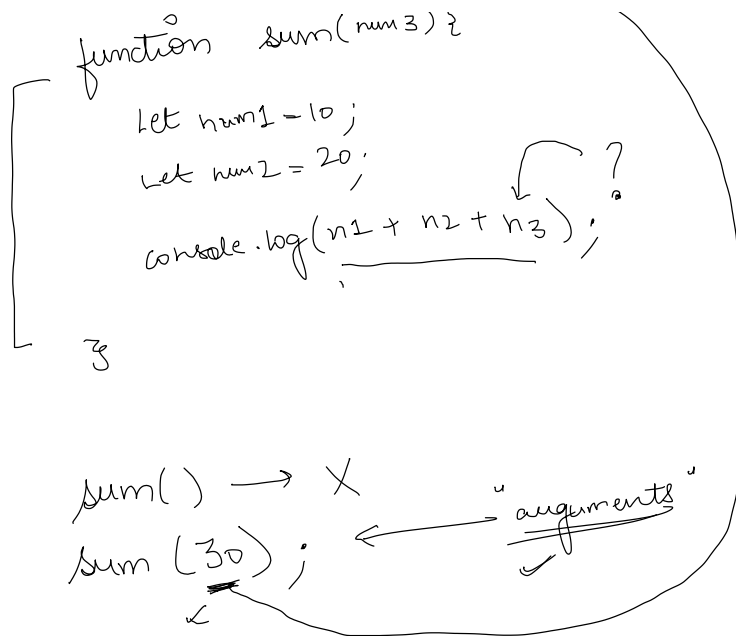 function sum(num3){
Let num1 = 10;
Let num2 = 20;
?
console.log(n1 + n2 + n3);
}
sum() → X
"auguments"
sum (30);